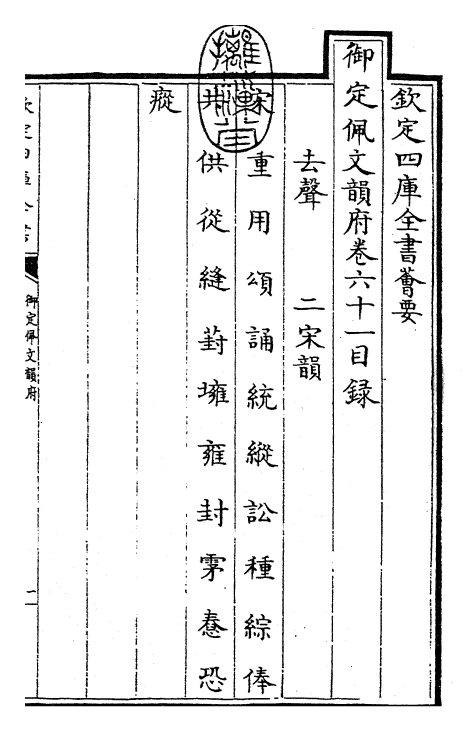 欽定四庫全書薈要
御定佩文韻府卷六十一目録
去聲　二宋韻
宋重用頌誦統縱訟種綜俸
共供從縫葑壅雍封雺惷恐
瘲
御定佩文韻府